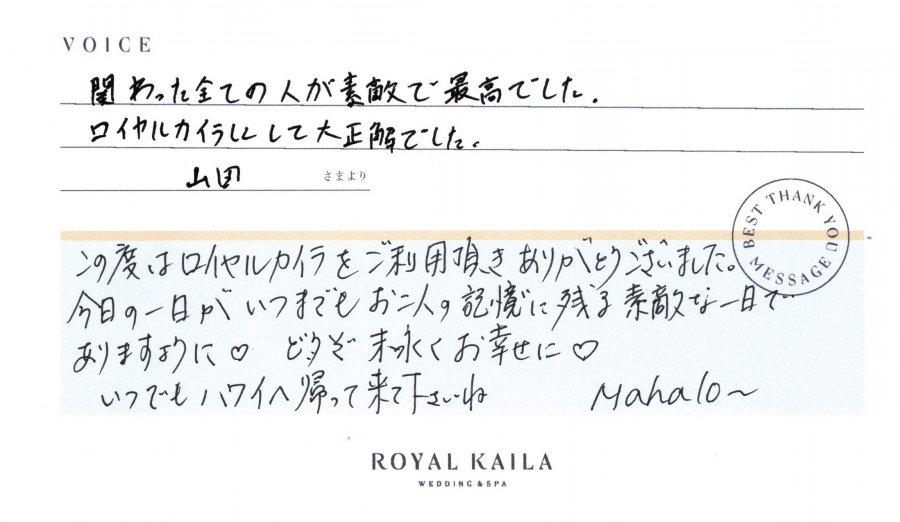 VOICE
関わった全ての人が素敵で最高でした.
ロイヤルカイラにして大正解でした。
山田 さまより
BEST THANK YOU MESSAGE
この度はロイヤルカイラをご利用頂きありがとうございました。
今日の一日がいつまでもお二人の記憶に残る素敵な一日で
ありますように♡ どうぞ末永くお幸せに♡
いつでもハワイへ帰って来て下さいね Mahalo〜
ROYAL KAILA
WEDDING & SPA